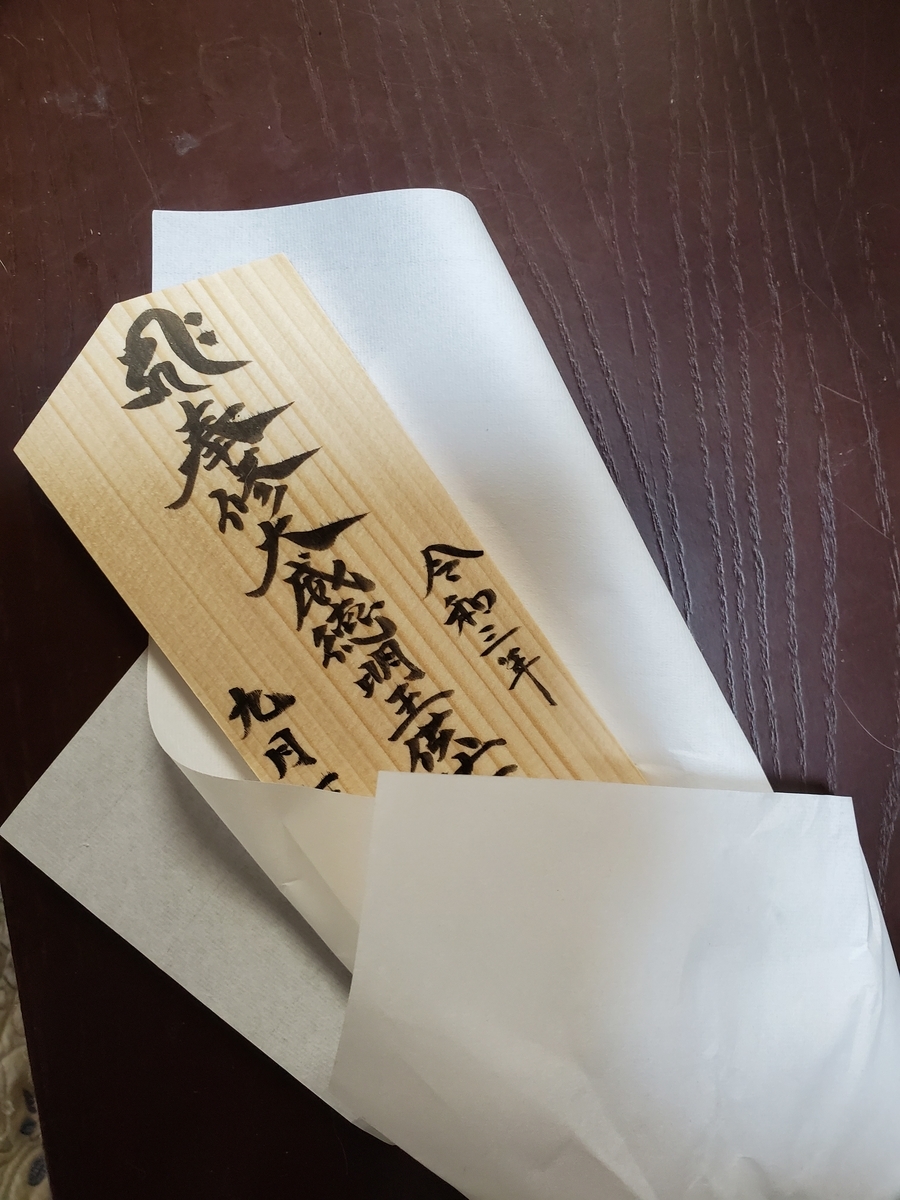 令和三年
奉修大威徳明王
九月